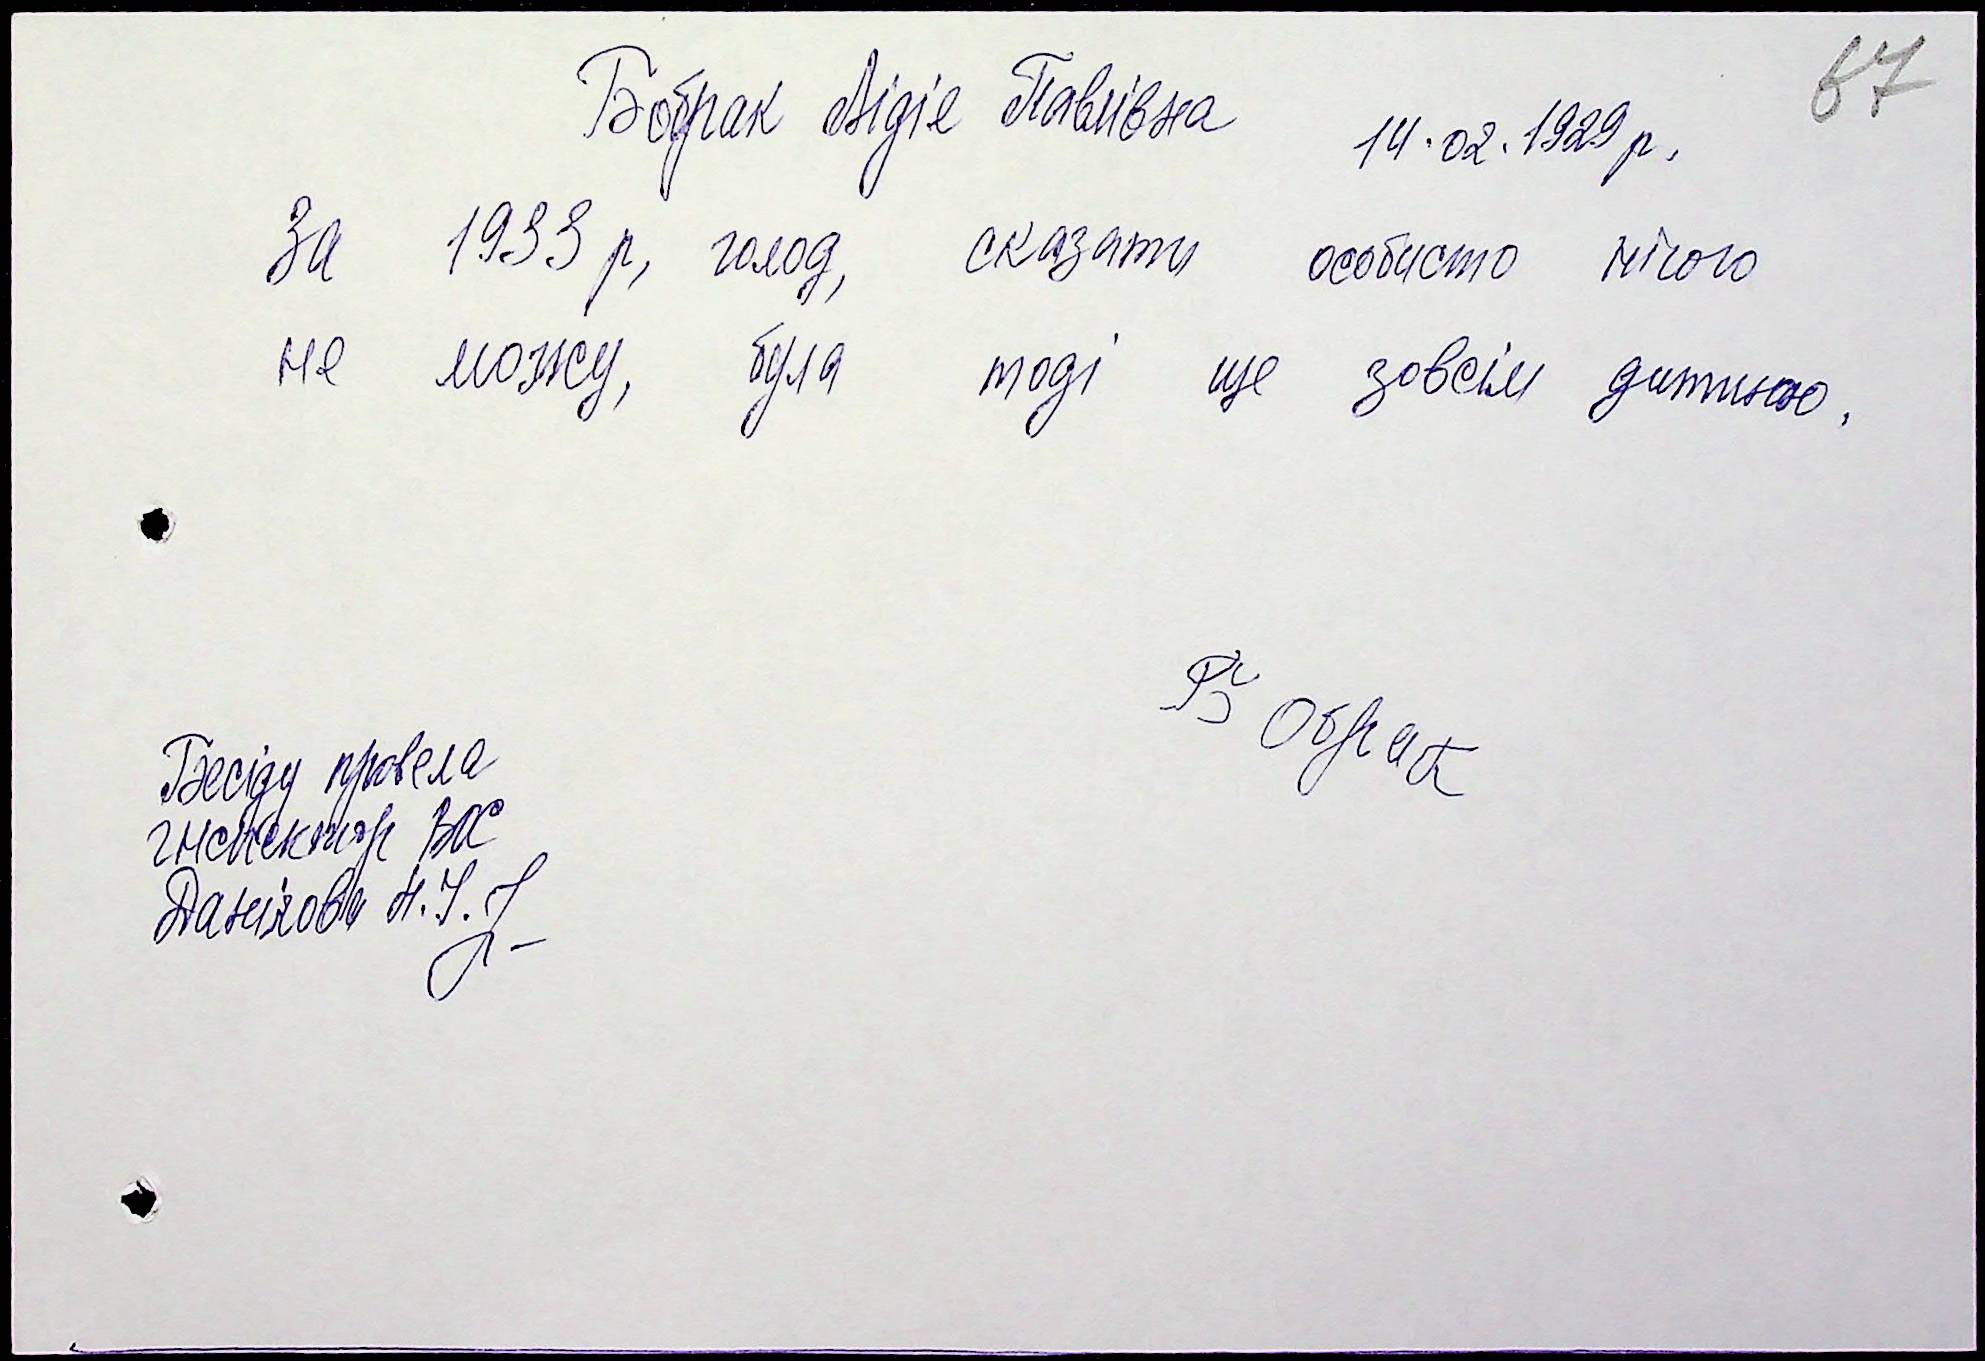 67
Бобрак Лідія Павлівна 14.02.1929 р.
За 1933 р, голод, сказати особисто нічого
не можу, була тоді ще зовсім дитиною.
Бобрак
Бесіду провела
інспектор ВОС
Данілова Н.І.